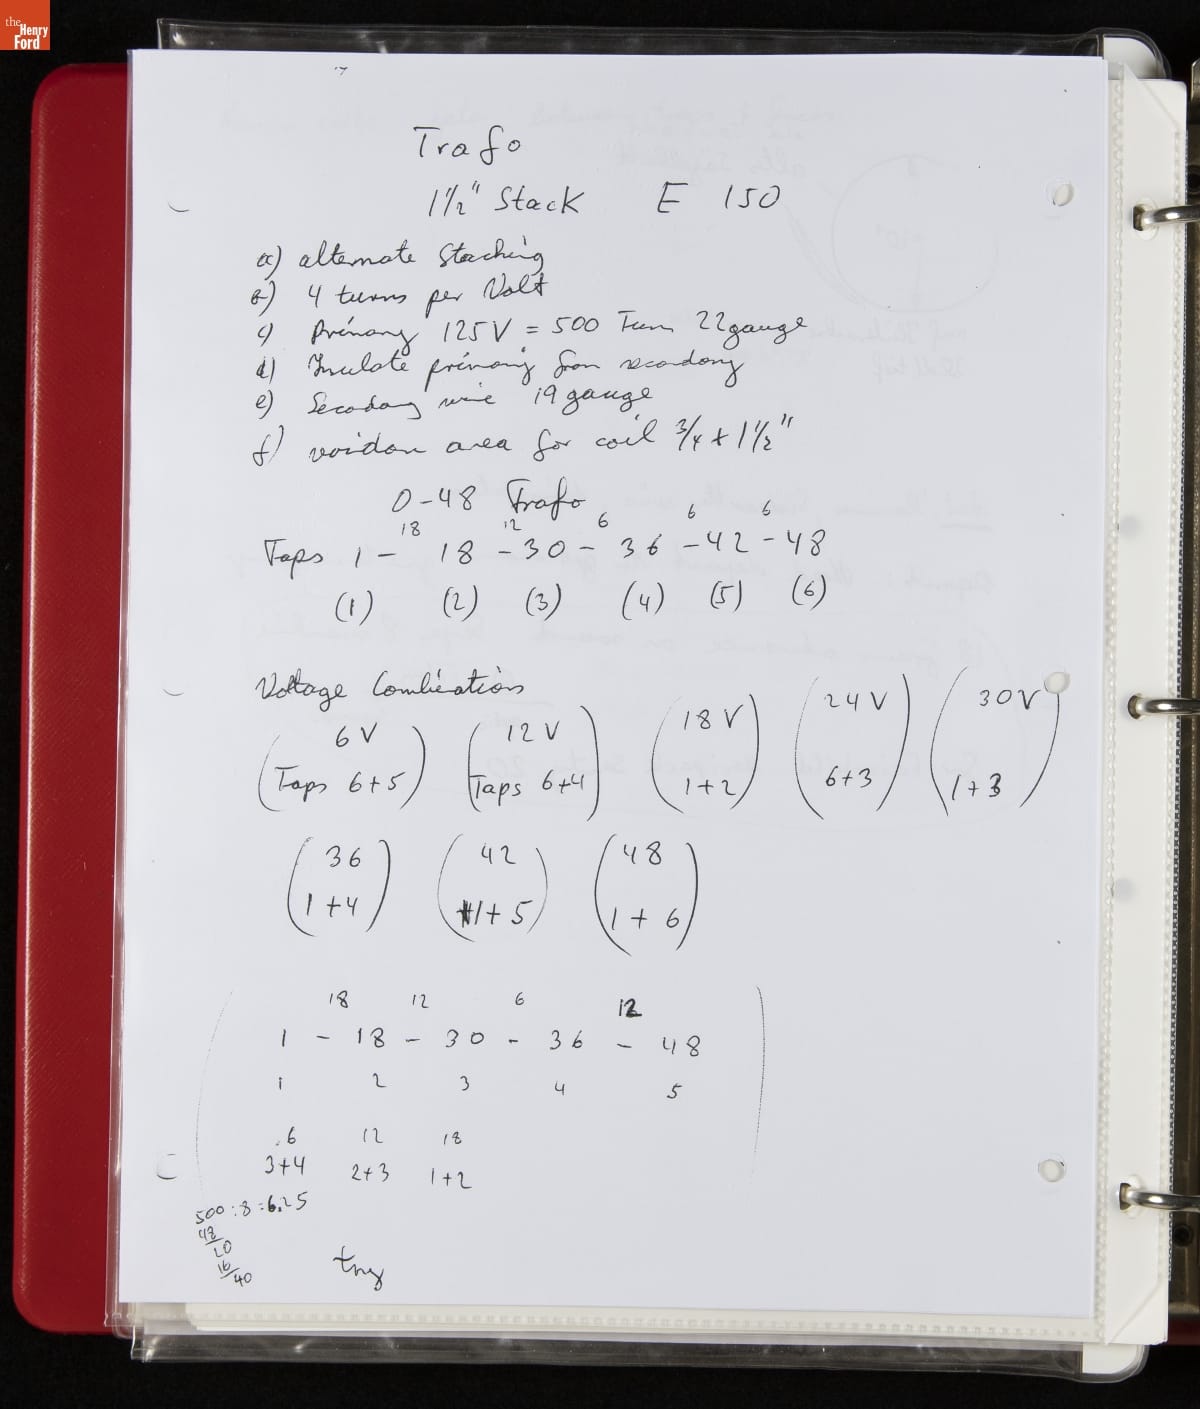 the
Henry
Ford
Trafo
1 1/2" Stack E 150
a) alternate Stacking
b) 4 turns per Volt
c) Primary 125V = 500 Turn 22 gauge
d) Insulate primary from secondary
e) Secondary wire 19 gauge
f) area for coil 3/4 + 1 1/2"
0-48 Trafo
18 12 6 6 6
Taps 1 - 18 - 30 - 36 - 42 - 48
(1) (2) (3) (4) (5) (6)
Voltage Combinations
6V 12V 18V 24V 30V
(Taps 6+5) (Taps 6+4) (1+2) (6+3) (1+3)
36 42 48
(1+4) (1+5) (1+6)
18 12 6 12
1 - 18 - 30 - 36 - 48
1 2 3 4 5
6 12 18
3+4 2+3 1+2
500:8=6.25
48
20
16
40
try